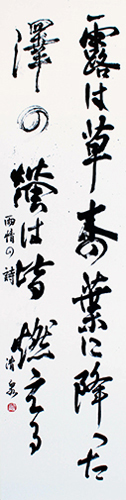 露は草木の葉に降った
澤の螢は皆燃える
雨情の詩
清泉